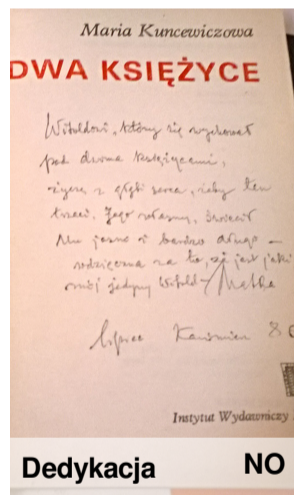 Maria Kuncewiczowa
DWA KSIĘŻYCE
Witoldowi, który się wychował
pod dwoma księżycami,
życzę z głębi serca, żeby ten
trzeci, Jego własny, świecił
Mu jasno i bardzo długo —
wdzięczna za to, że jest jaki
mój jedyny Witold — Matka
lipiec Kazimierz 8
Instytut Wydawniczy
Dedykacja
NO